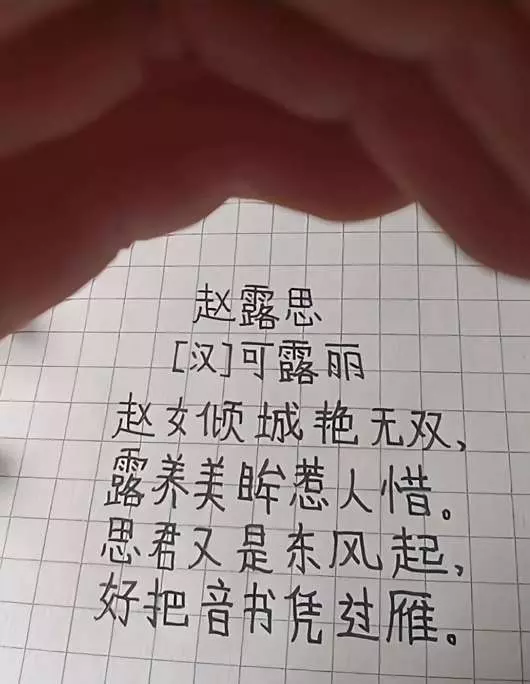 赵露思
[汉]可露丽
赵女倾城艳无双,
露养美眸惹人惜。
思君又是东风起,
好把音书凭过雁。